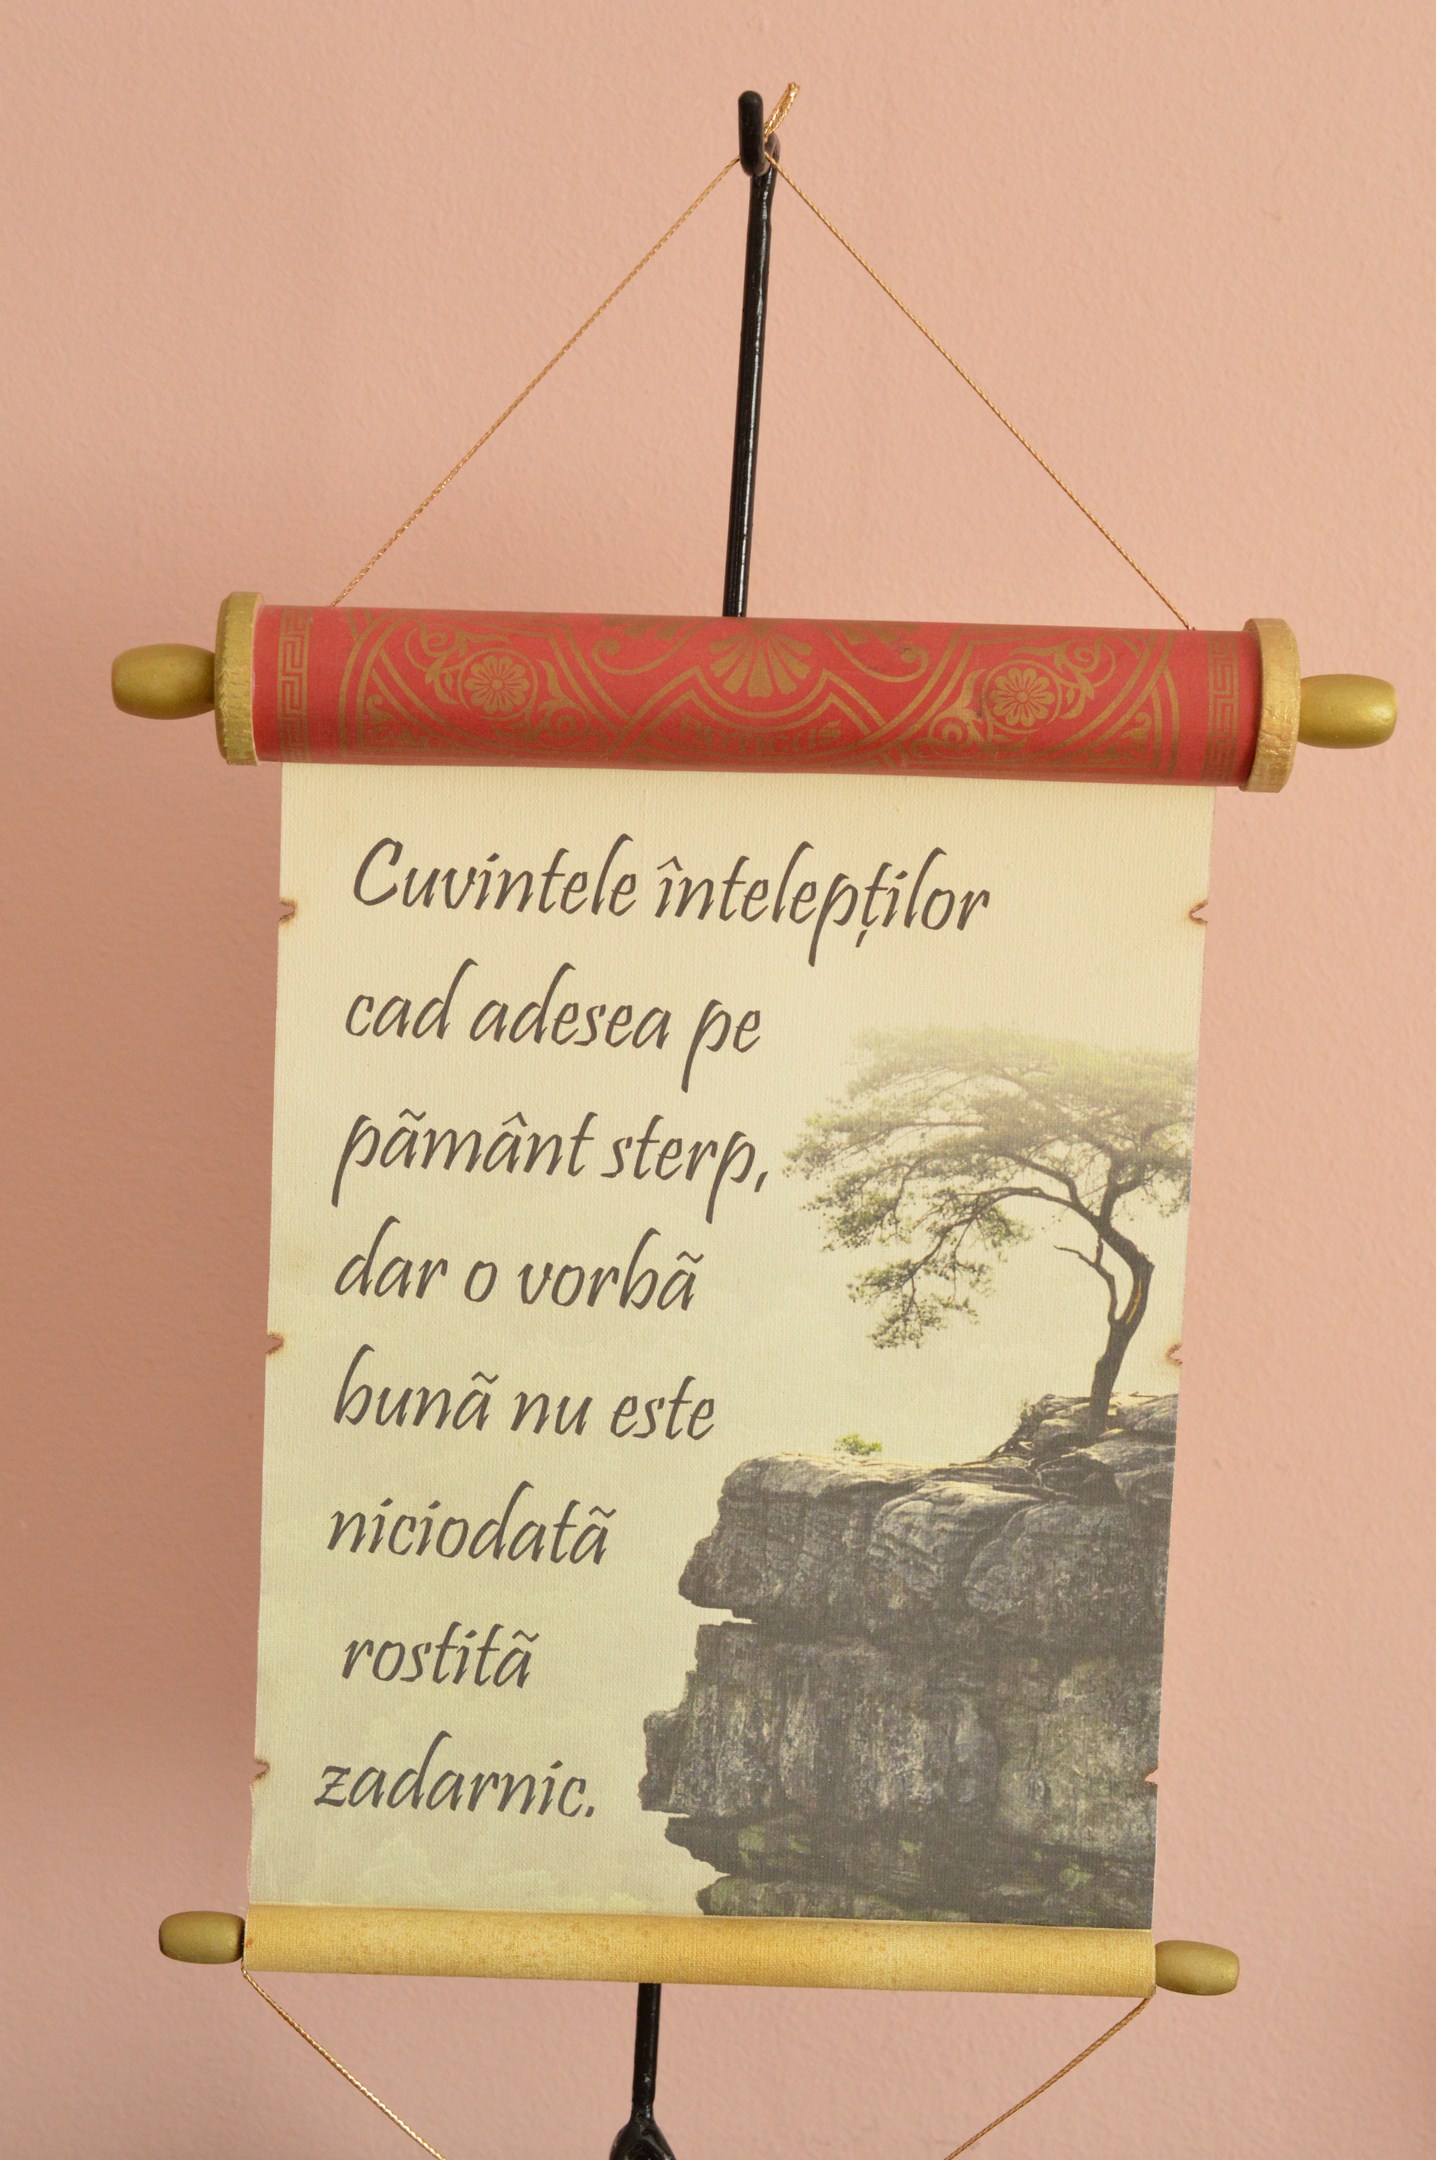 Cuvintele întelepților
cad adesea pe
pãmânt sterp,
dar o vorbã
bunã nu este
niciodatã
rostitã
zadarnic.